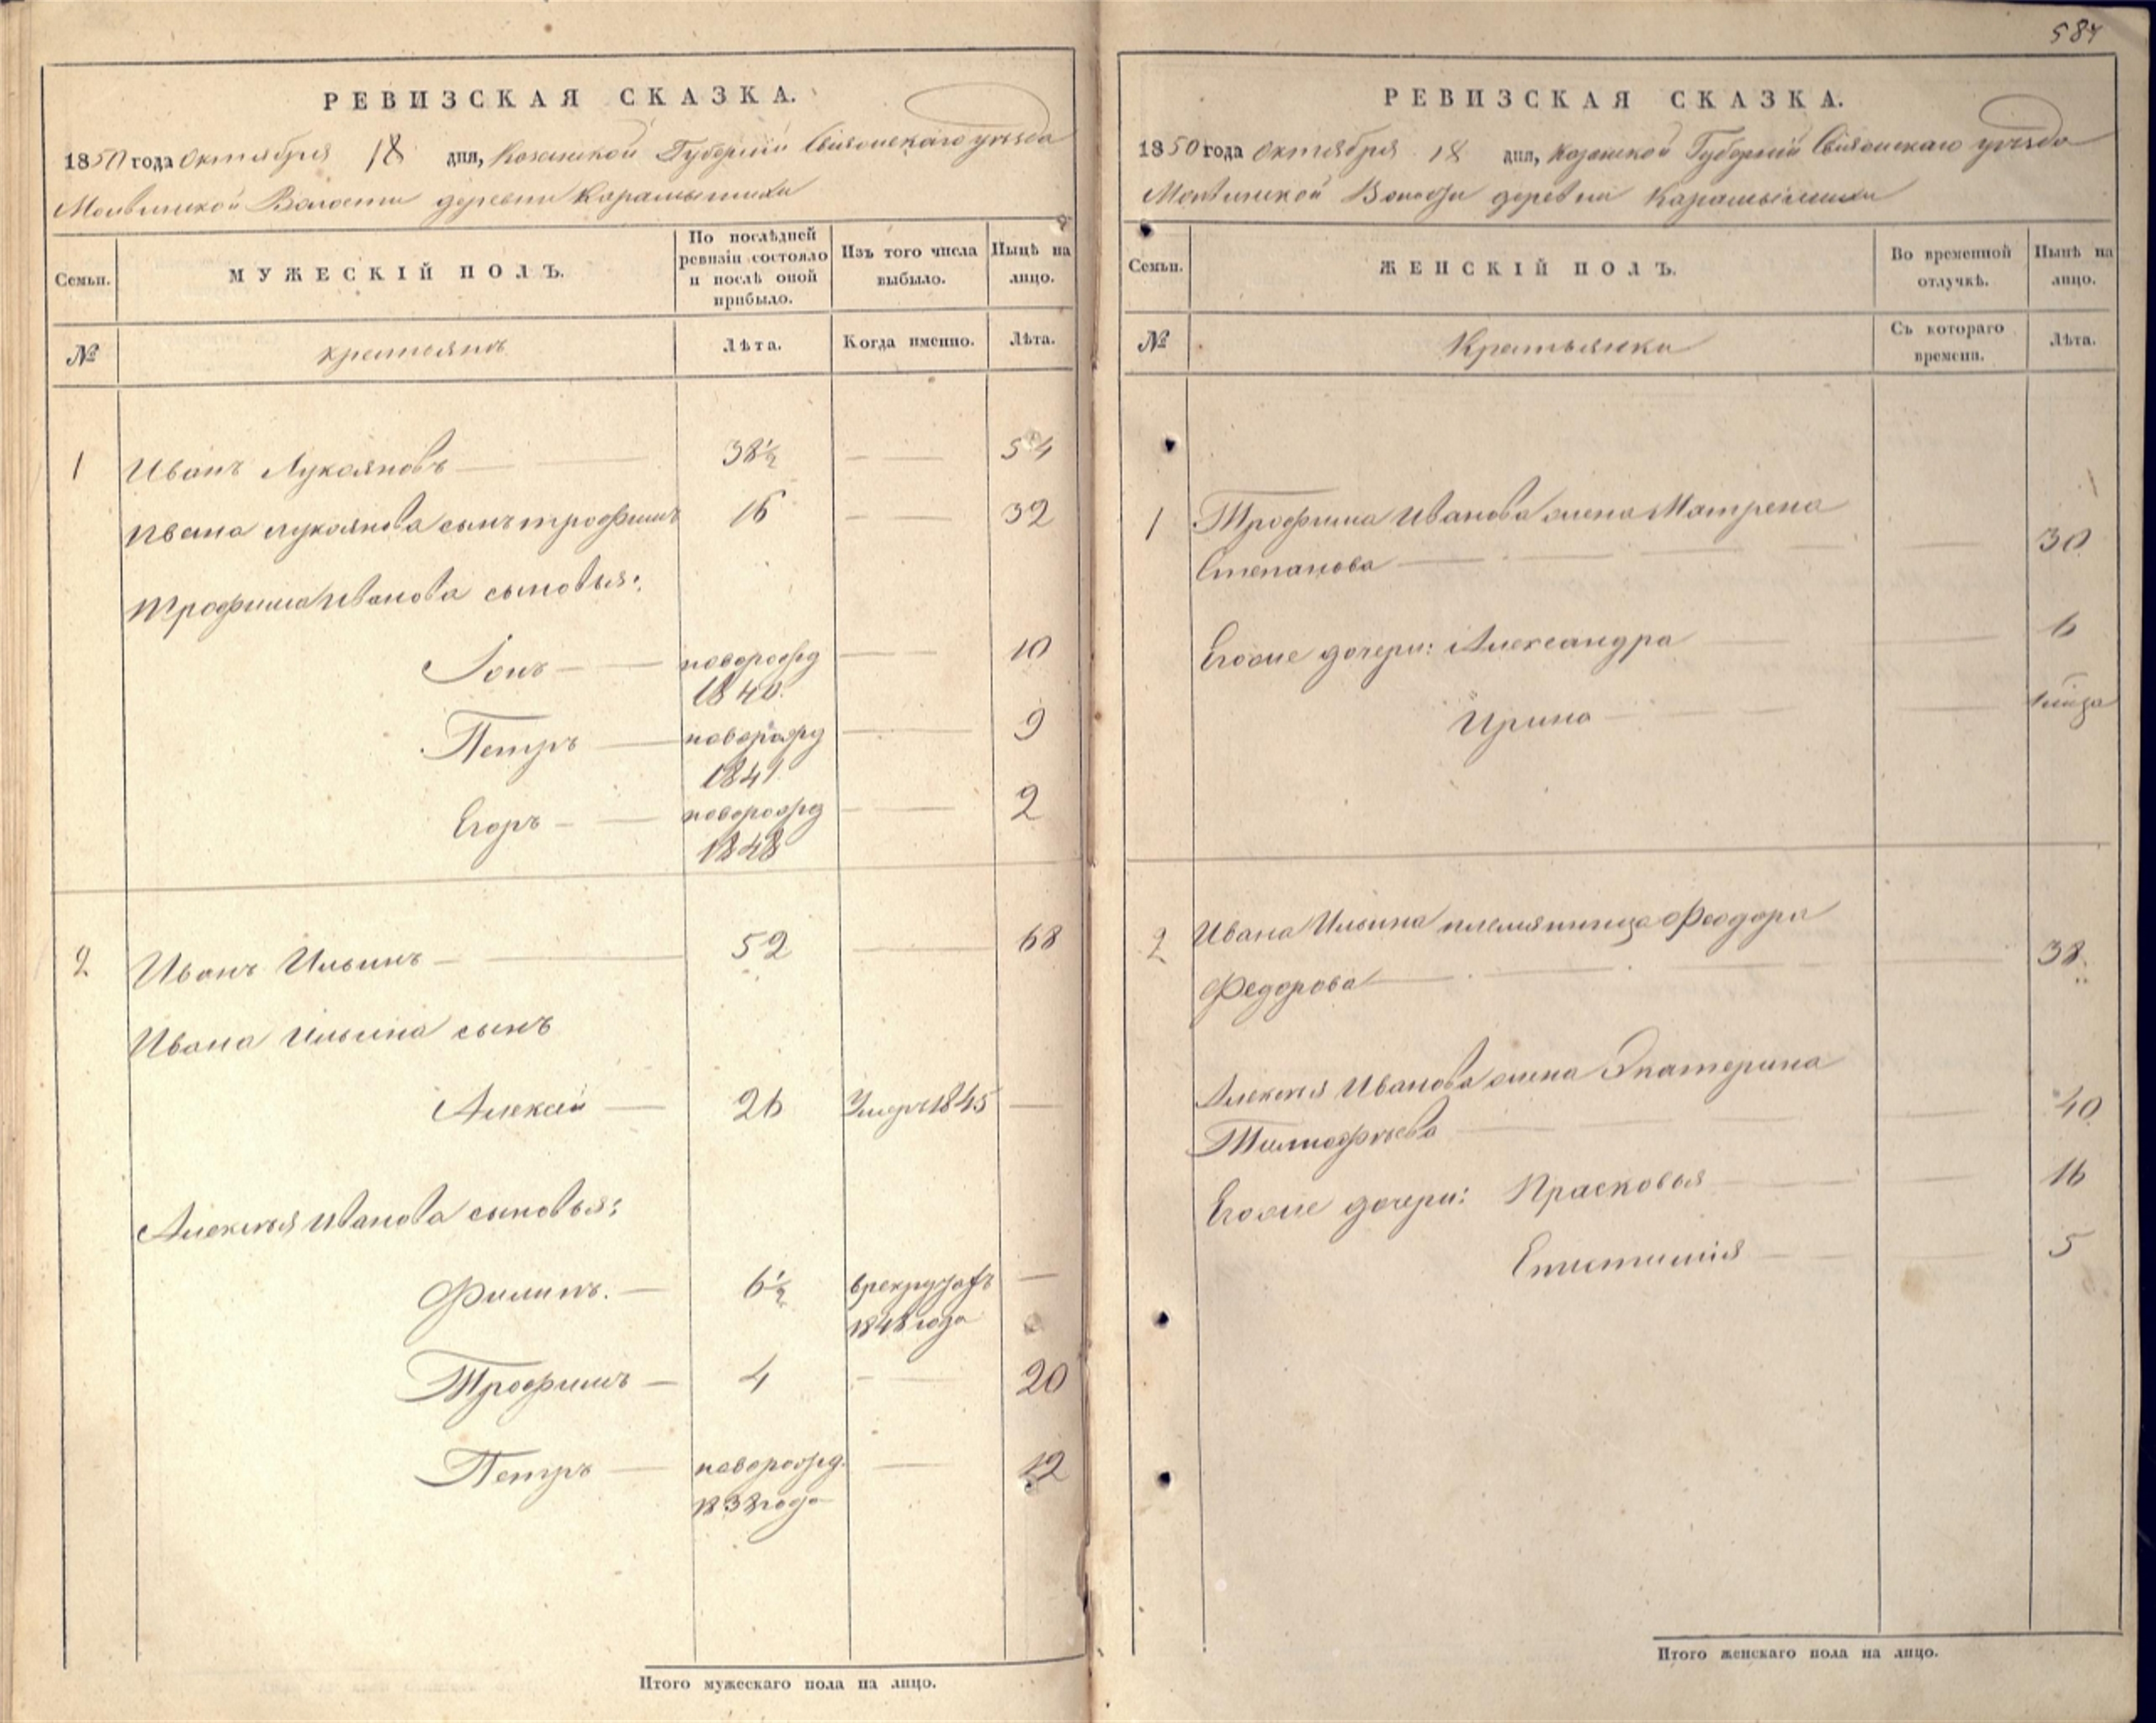 587
РЕВИЗСКАЯ СКАЗКА.
1850 года Октября 18 дня, Казанской Губерніи Свіяжскаго уѣзда
Волости деревни Карамышихи
Семьи.
МУЖЕСКІЙ ПОЛЪ.
По послѣдней ревизіи состояло и послѣ оной прибыло.
Изъ того числа выбыло.
Нынѣ на лицо.
№
крестьянъ
Лѣта.
Когда именно.
Лѣта.
1 Иванъ Лукояновъ 38½ 54
Ивана Лукоянова сынъ трофимъ 16 32
Трофима Иванова сыновья:
Іонъ новорожд 10
1840.
Петръ новорожд 9
1841
Егоръ новорожд 2
1848
2 Иванъ Ильинъ 52 68
Ивана Ильина сынъ
Алексѣй 26 Умеръ 1845
Алексѣя Иванова сыновья:
Филипъ. 6½ в рекрутахъ
1848 года
Трофимъ 4 20
Петръ новорожд. 12
1838 года
Итого мужескаго пола на лицо.
РЕВИЗСКАЯ СКАЗКА.
1850 года Октября 18 дня, Казанской Губерніи Свіяжскаго уѣзда
Волости деревни Карамышихи
Семьи.
ЖЕНСКІЙ ПОЛЪ.
Во временной отлучкѣ.
Нынѣ на лицо.
№
Крестьянки
Съ котораго времени.
Лѣта.
1 Трофима Иванова жена Матрена
Степанова 30
Егоже дочери: Александра 6
Ирина
2 Ивана Ильина племянница Феодора
Федорова 38
Алексѣя Иванова жена Екатерина
Тимофѣева 40
Егоже дочери: Прасковья 16
Епистимія 5
Итого женскаго пола на лицо.